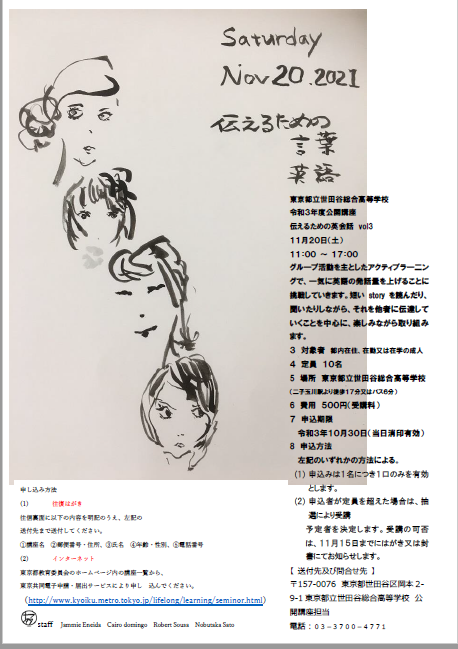 Saturday
Nov 20. 2021
伝えるための
言葉
英語
東京都立世田谷総合高等学校
令和3年度公開講座
伝えるための英会話 vol3
11月20日(土)
11:00 ~ 17:00
グループ活動を主としたアクティブラーニン
グで、一気に英語の発話量を上げることに
挑戦していきます。短い story を読んだり、
聞いたりしながら、それを他者に伝達して
いくことを中心に、楽しみながら取り組み
ます。
3 対象者 都内在住、在勤又は在学の成人
4 定員 10名
5 場所 東京都立世田谷総合高等学校
(二子玉川駅より徒歩17分又はバス6分)
6 費用 500円(受講料)
7 申込期限
令和3年10月30日(当日消印有効)
8 申込方法
左記のいずれかの方法による。
(1) 申込みは1名につき1口のみを有効
とします。
(2) 申込者が定員を超えた場合は、抽
選により受講
予定者を決定します。受講の可否
は、11月15日までにはがき又は封
書にてお知らせします。
【 送付先及び問合せ先 】
〒157-0076 東京都世田谷区岡本2-
9-1東京都立世田谷総合高等学校 公
開講座担当
電話:03-3700-4771
申し込み方法
(1) 往復はがき
往信裏面に以下の内容を明記のうえ、左記の
送付先まで送付してください。
①講座名 ②郵便番号・住所、③氏名 ④年齢・性別、⑤電話番号
(2) インターネット
東京都教育委員会のホームページ内の講座一覧から、
東京共同電子申請・届出サービスにより申し 込んでください。
(http://www.kyoiku.metro.tokyo.jp/lifelong/learning/seminor.html)
staff Jammie Eneida Cairo domingo Robert Sousa Nobutaka Sato